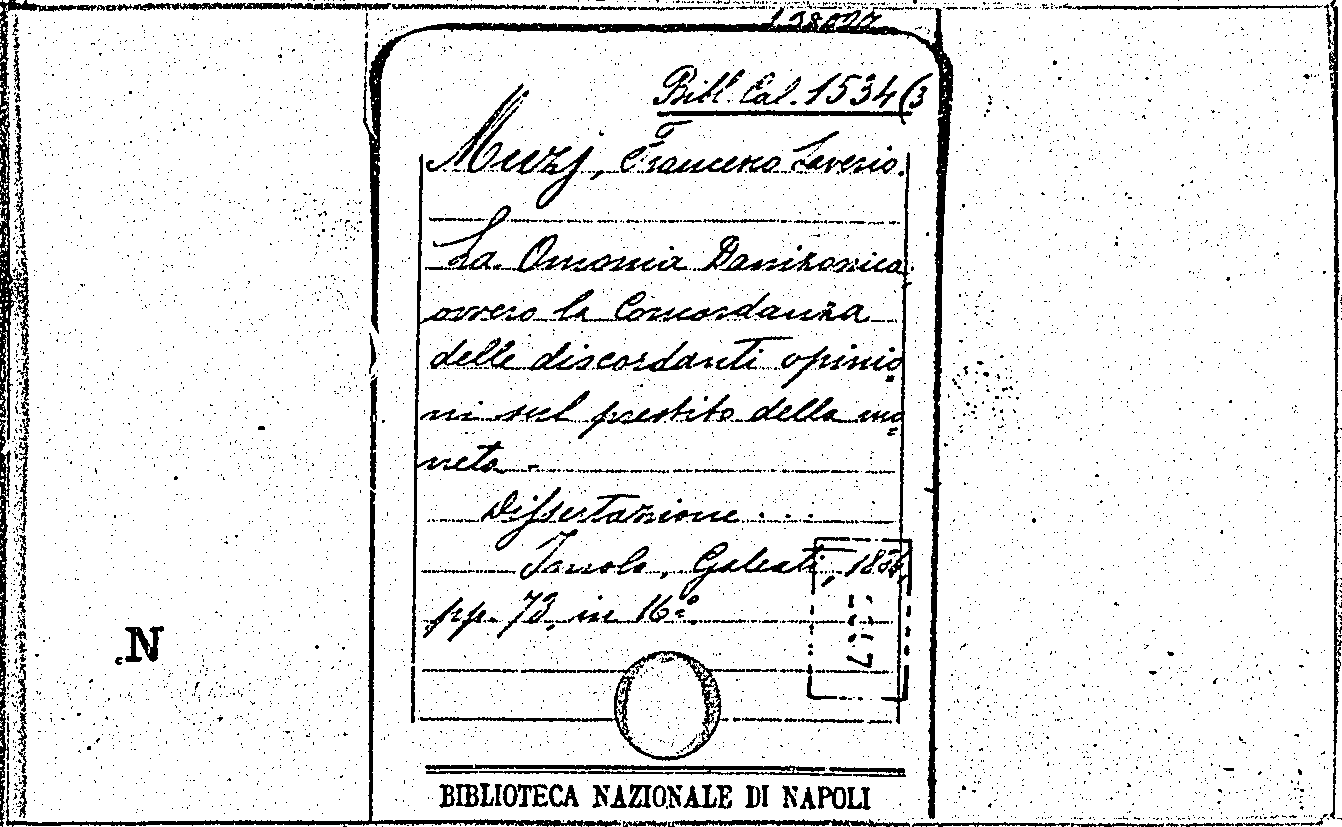 Bibl. Cal. 1534(3
Muzj, Francesco Saverio.
La Omonia Danizonica,
ovvero la Concordanza
delle discordanti opinio
ni sul prestito della mo
neta.
Dissertazione ...
Galeati,
pp. 73, in 16º.
N
BIBLIOTECA NAZIONALE DI NAPOLI